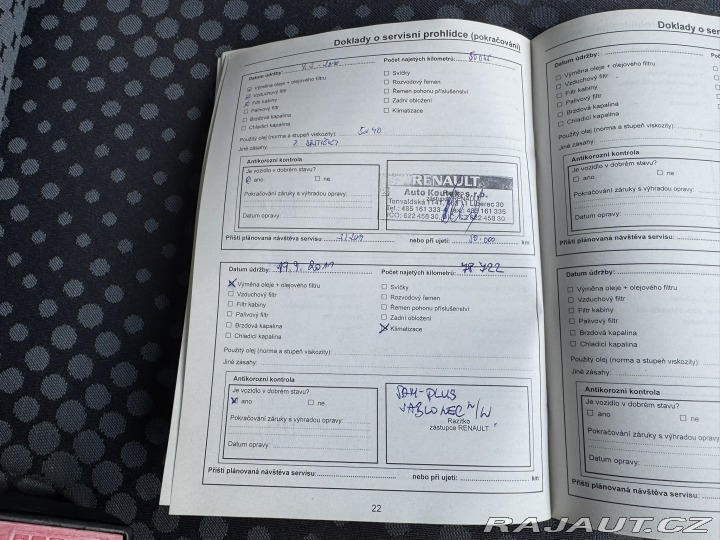 Doklady o servisní prohlídce (pokračování)
Datum údržby:
Počet najetých kilometrů:
Výměna oleje + olejového filtru
Vzduchový filtr
Filtr kabiny
Palivový filtr
Brzdová kapalina
Chladicí kapalina
Svíčky
Rozvodový řemen
Řemen pohonu příslušenství
Zadní obložení
Klimatizace
Použitý olej (norma a stupeň viskozity)
Jiné zásahy:
Antikorozní kontrola
Je vozidlo v dobrém stavu?
ano ne
Pokračování záruky s výhradou opravy:
Datum opravy:
RENAULT
zástupce RENAULT
Tanvaldská 1141, Liberec 30
Tel.: 485 161 333
Příští plánovaná návštěva servisu:
nebo při ujetí: km
Datum údržby: 19.9.2011
Počet najetých kilometrů: 78 722
Výměna oleje + olejového filtru
Vzduchový filtr
Filtr kabiny
Palivový filtr
Brzdová kapalina
Chladicí kapalina
Svíčky
Rozvodový řemen
Řemen pohonu příslušenství
Zadní obložení
Klimatizace
Použitý olej (norma a stupeň viskozity)
Jiné zásahy:
Antikorozní kontrola
Je vozidlo v dobrém stavu?
ano ne
Pokračování záruky s výhradou opravy:
Datum opravy:
SAM-PLUS
JABLONEC N/N
Razítko
zástupce RENAULT
Příští plánovaná návštěva servisu:
nebo při ujetí: km
22
Doklady o ser
Datum údržby:
Výměna oleje + olejového filtru
Vzduchový filtr
Filtr kabiny
Palivový filtr
Brzdová kapalina
Chladicí kapalina
Použitý olej (norma a stupeň viskozity)
Jiné zásahy:
Antikorozní kontrola
Je vozidlo v dobrém stavu?
ano ne
Pokračování záruky s výhradou
Datum opravy:
Příští plánovaná návštěva servisu:
Datum údržby:
Výměna oleje + olejového filtru
Vzduchový filtr
Filtr kabiny
Palivový filtr
Brzdová kapalina
Chladicí kapalina
Použitý olej (norma a stupeň viskozity)
Jiné zásahy:
Antikorozní kontrola
Je vozidlo v dobrém stavu?
ano ne
Pokračování záruky s výhradou oprav
Datum opravy:
Příští plánovaná návštěva servisu:
RAJAUT.CZ